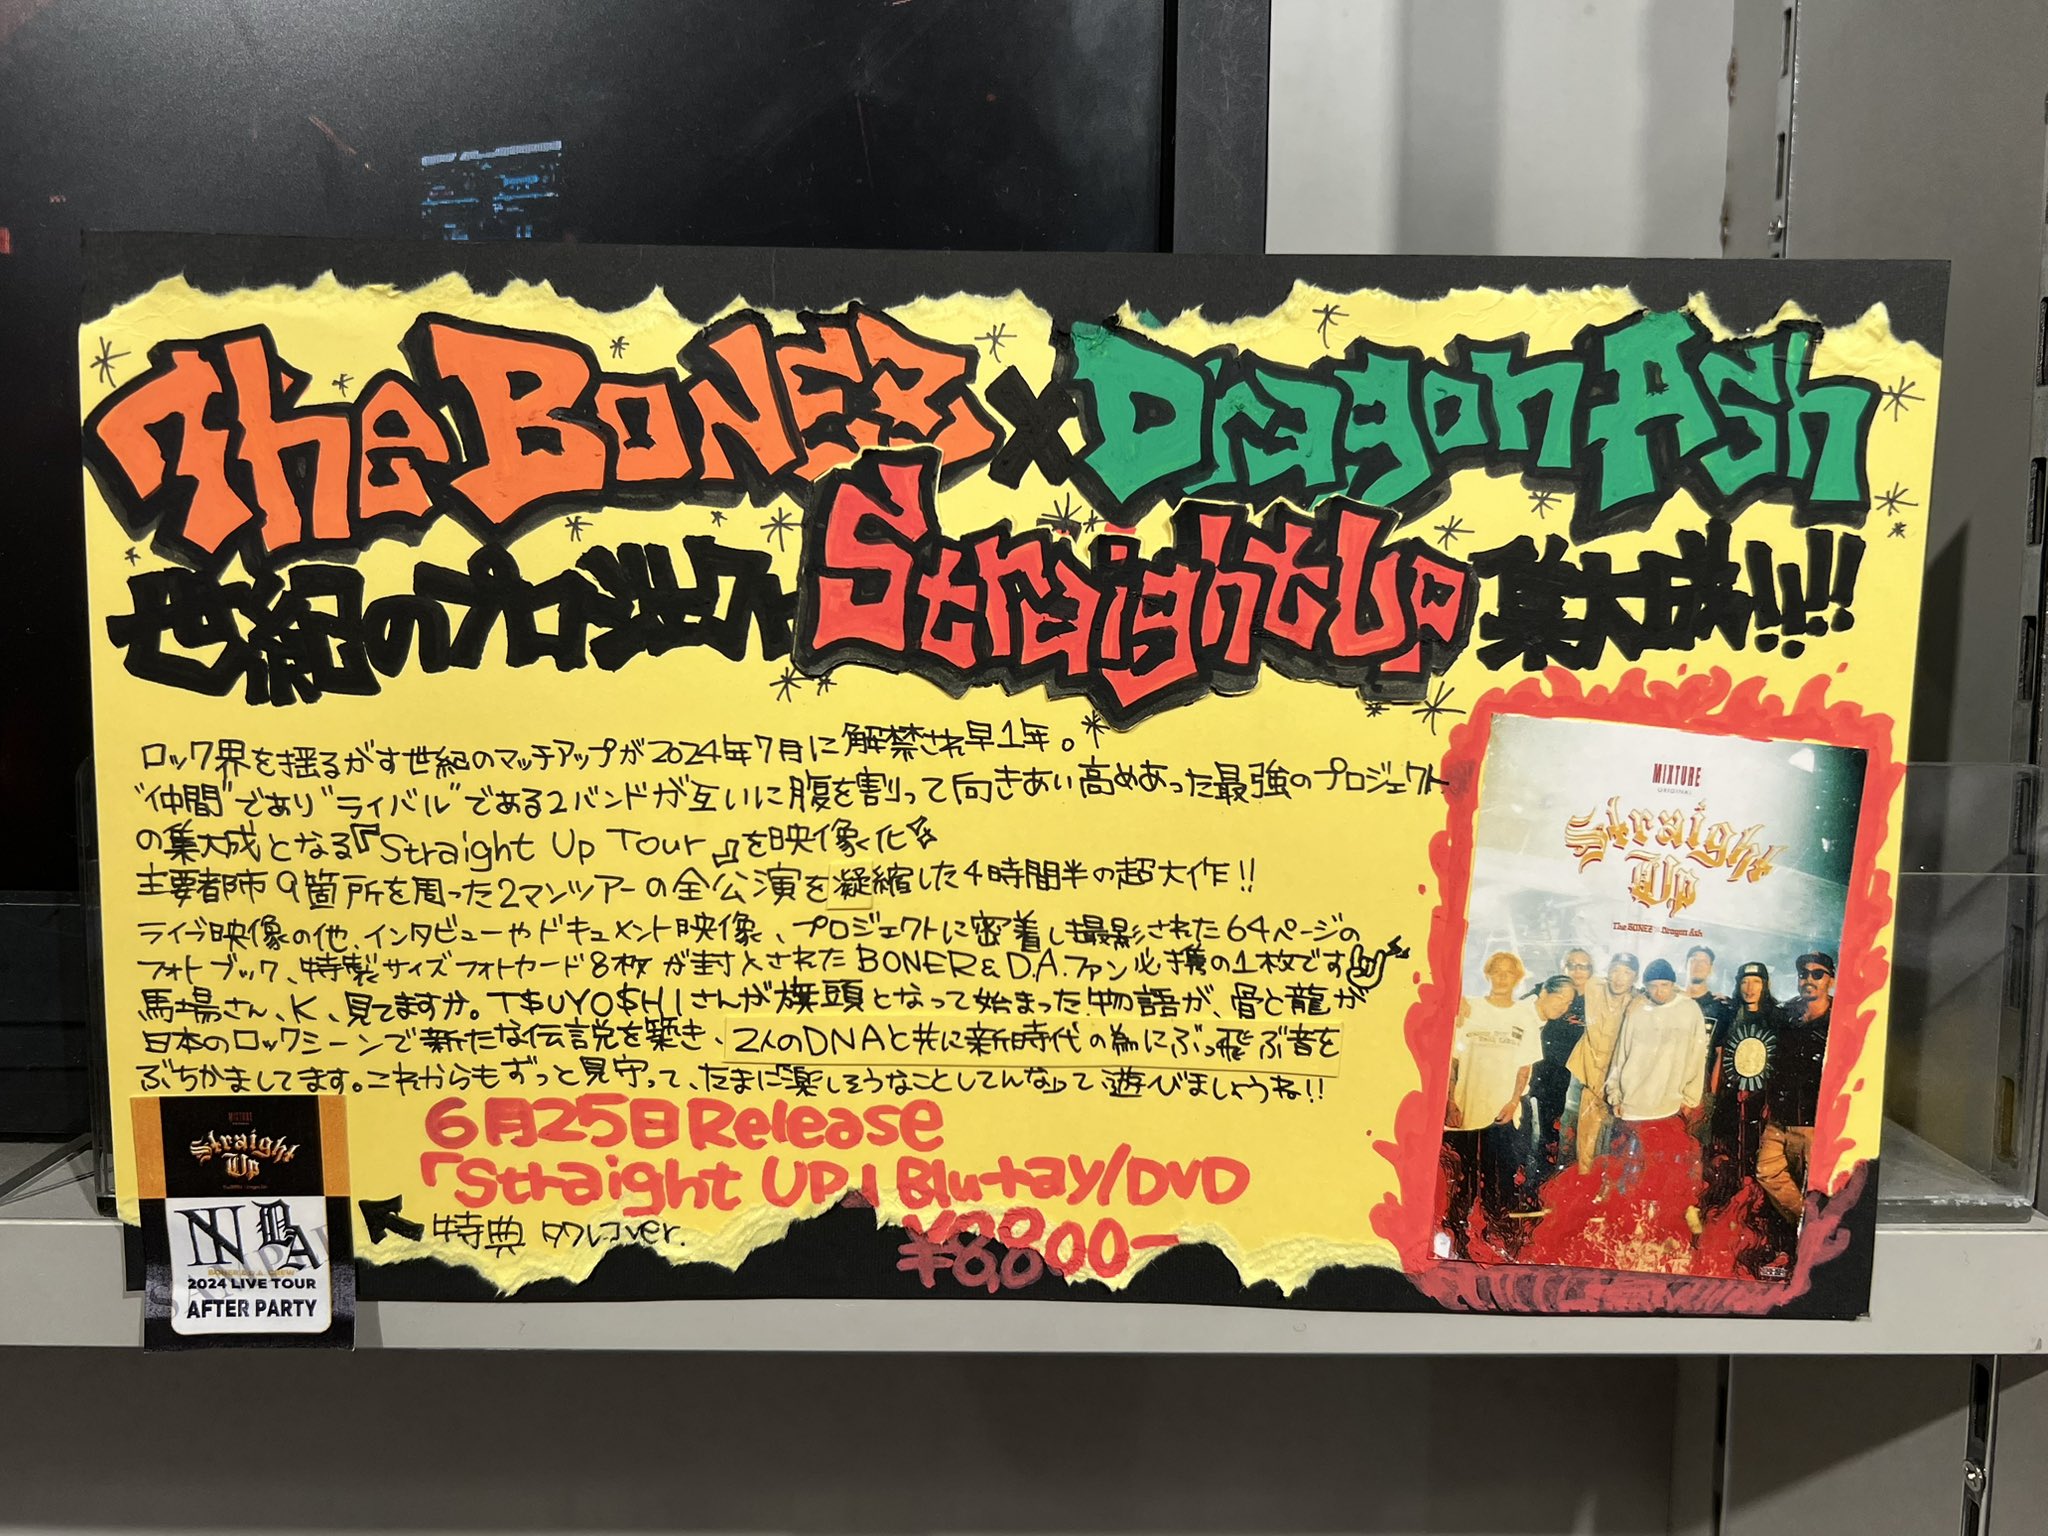 The BONEZ × Dragon Ash
世紀のプロジェクト Straight Up 集大成!!!!
ロック界を揺るがす世紀のマッチアップが2024年7月に解禁され早1年。
"仲間"であり"ライバル"である2バンドが互いに腹を割って向きあい高めあった最強のプロジェクト
の集大成となる『Straight Up Tour』を映像化
主要都市9箇所を周った2マンツアーの全公演を凝縮した4時間半の超大作!!
ライブ映像の他、インタビューやドキュメント映像、プロジェクトに密着し撮影された64ページの
フォトブック、特製サイズフォトカード8枚が封入されたBONER&D.A.ファン必携の1枚です
馬場さん、K、見てますか。T$UYO$HIさんが旗頭となって始まった物語が、骨と龍が
日本のロックシーンで新たな伝説を築き、2人のDNAと共に新時代の為にぶっ飛ぶ音を
ぶちかましてます。これからもずっと見守って、たまに楽しそうなことしてんなって遊びましょうね!!
6月25日Release
「Straight UP」Blu-ray/DVD
¥8,800-
特典 タワレコver.
MIXTURE
ORIGINAL
Straight
Up
The BONEZ × Dragon Ash
MIXTURE
Straight
Up
2024 LIVE TOUR
AFTER PARTY